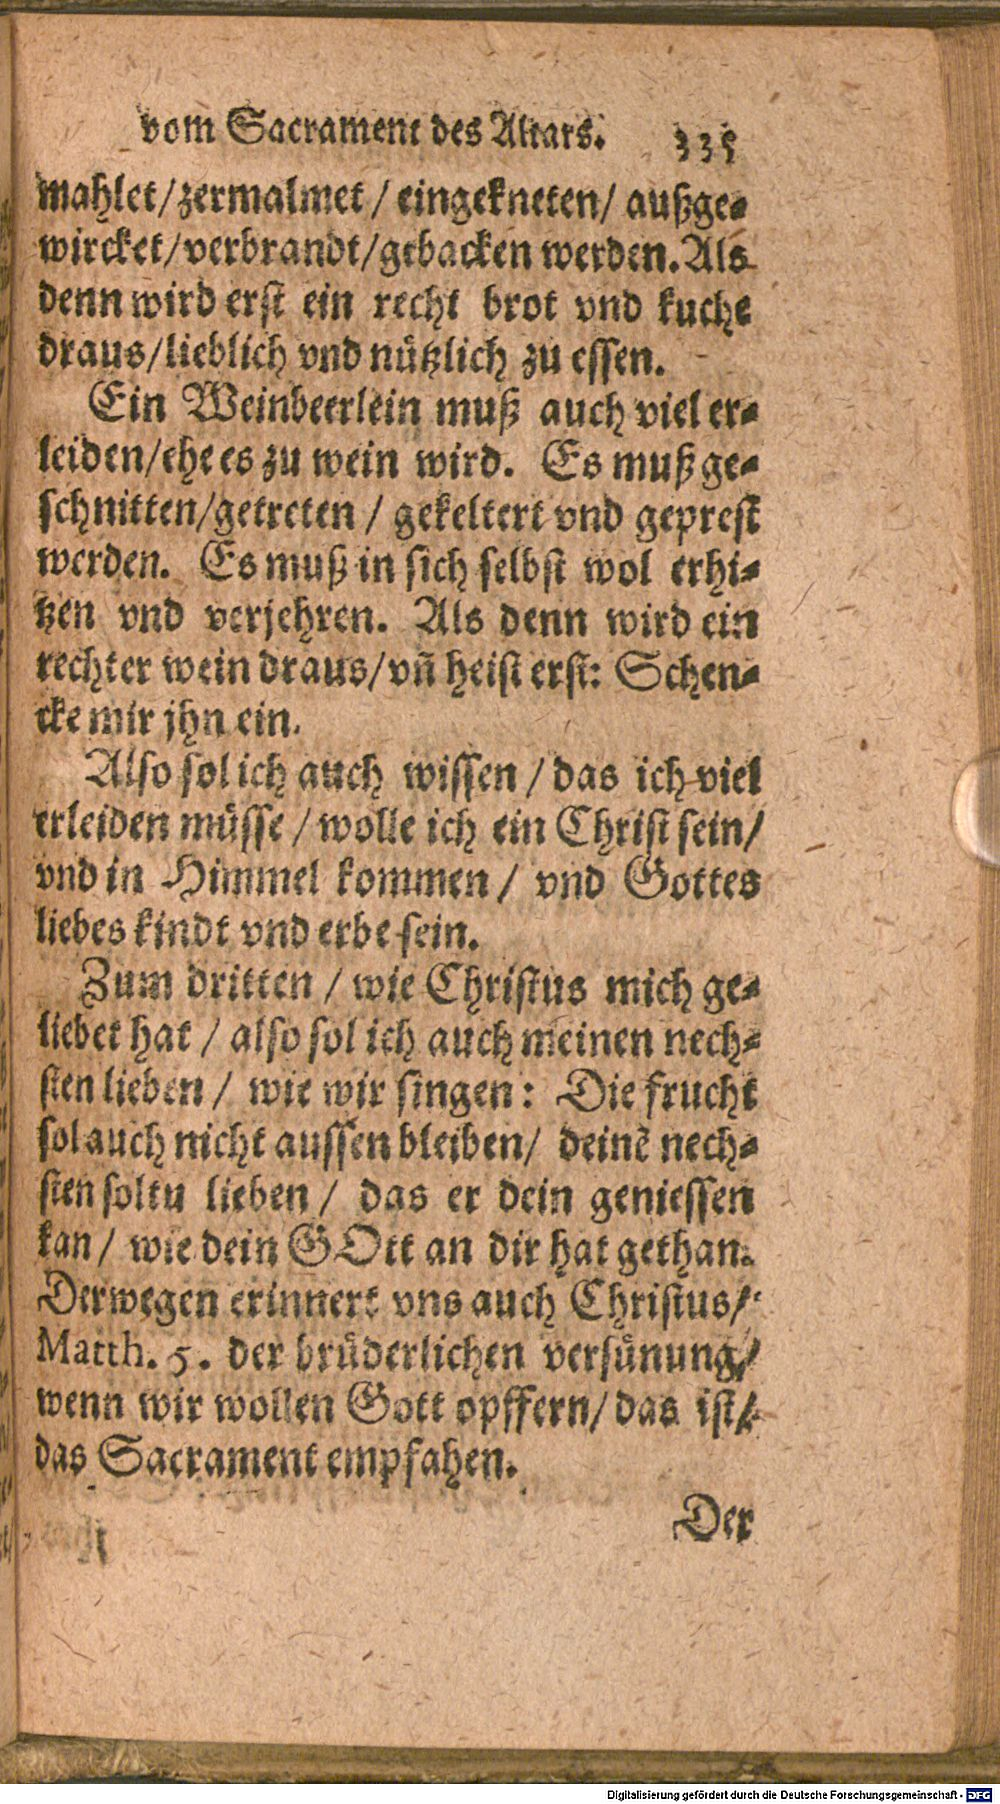 vom Sacrament des Altars. 335
mahlet/zermalmet / eingekneten/ außge⸗
wircket/verbrandt/gebacken werden. Als
denn wird erst ein recht brot vnd kuche
draus/lieblich vnd nützlich zu essen.
Ein Weinbeerlein muß auch viel er⸗
leiden/ehe es zu wein wird. Es muß ge⸗
schnitten/getreten / gekeltert vnd geprest
werden. Es muß in sich selbst wol erhi⸗
tzen vnd verjehren. Als denn wird ein
rechter wein draus/vñ heist erst: Schen⸗
cke mir jhn ein.
Also sol ich auch wissen / das ich viel
erleiden müsse / wolle ich ein Christ sein/
vnd in Himmel kommen / vnd Gottes
liebes kindt vnd erbe sein.
Zum dritten / wie Christus mich ge⸗
liebet hat / also sol ich auch meinen nech⸗
sten lieben / wie wir singen: Die frucht
sol auch nicht aussen bleiben/ deinē nech⸗
sten soltu lieben / das er dein geniessen
kan / wie dein GOtt an dir hat gethan.
Derwegen erinnert vns auch Christus/
Matth. 5. der brüderlichen versünung/
wenn wir wollen Gott opffern/ das ist/
das Sacrament empfahen.
Der
Digitalisierung gefördert durch die Deutsche Forschungsgemeinschaft - DFG